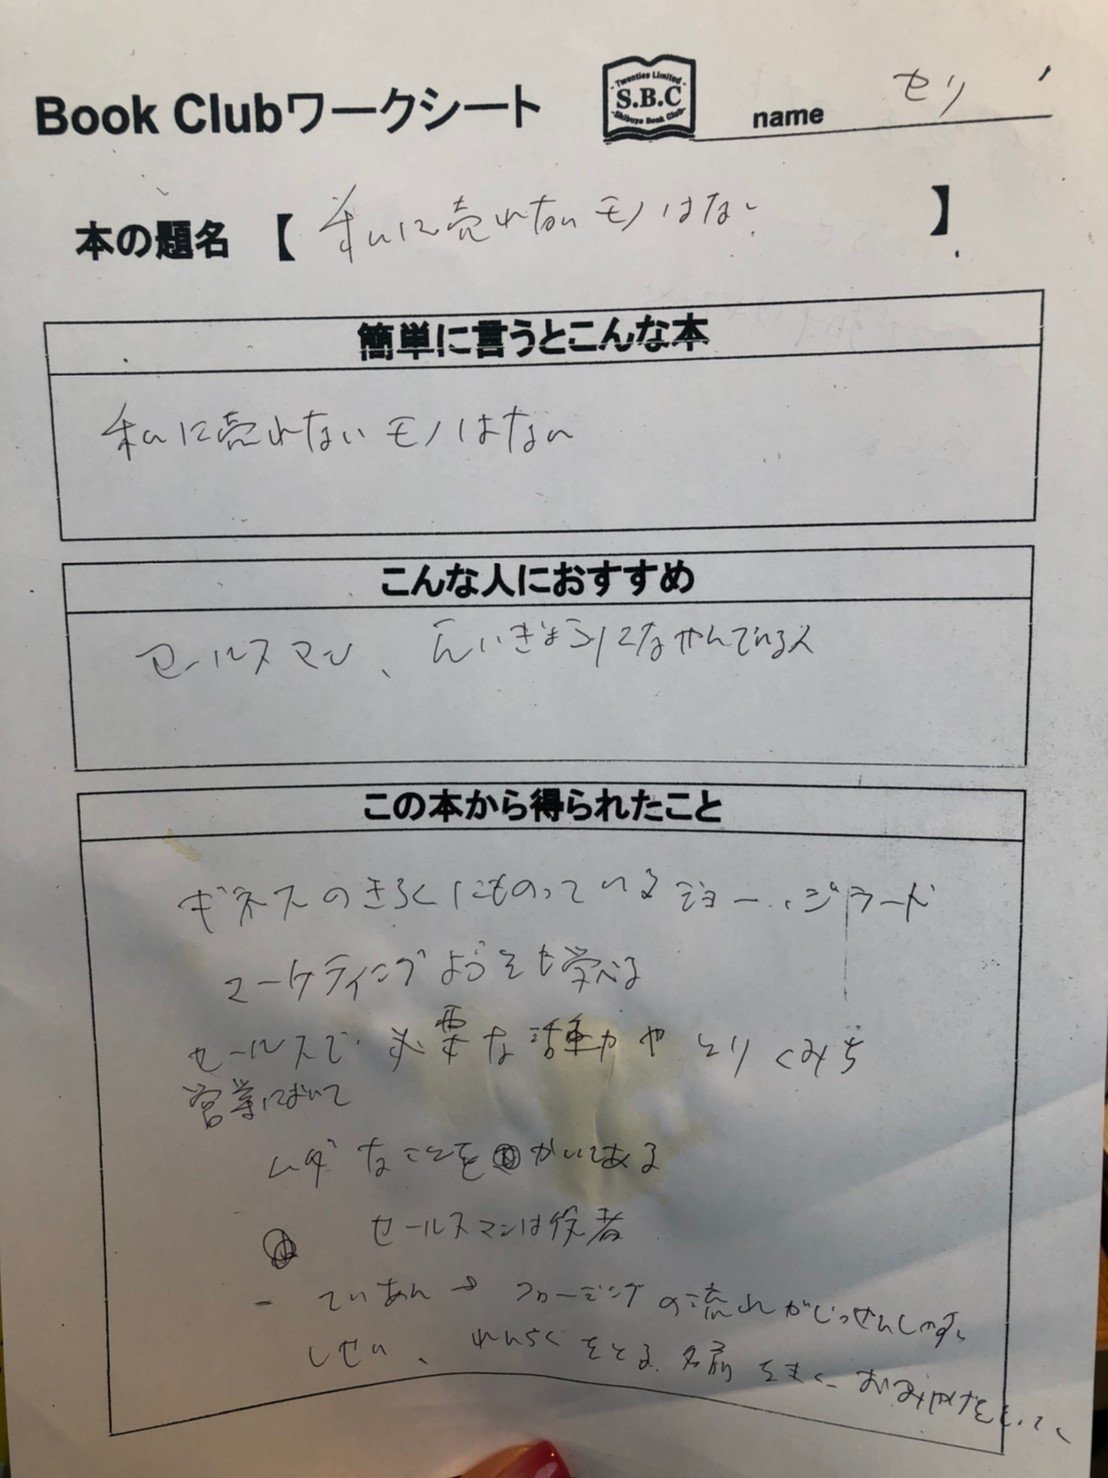 Book Clubワークシート
Twenties Limited
S.B.C
Shibuya Book Club
name セリ
本の題名 【 私に売れないモノはない 】
簡単に言うとこんな本
私に売れないモノはない
こんな人におすすめ
セールスマン、えいぎょうになやんでいる人
この本から得られたこと
ギネスのきろくにものっているジョー・ジラード
マーケティングようそも学べる
セールスで必要な活動やとりくみち
営業において
ムダなことをかいてある
セールスマンは役者
- ていあん→クロージングの流れがじっせんしやすい
しせい、れんらくをとる 名前をきく